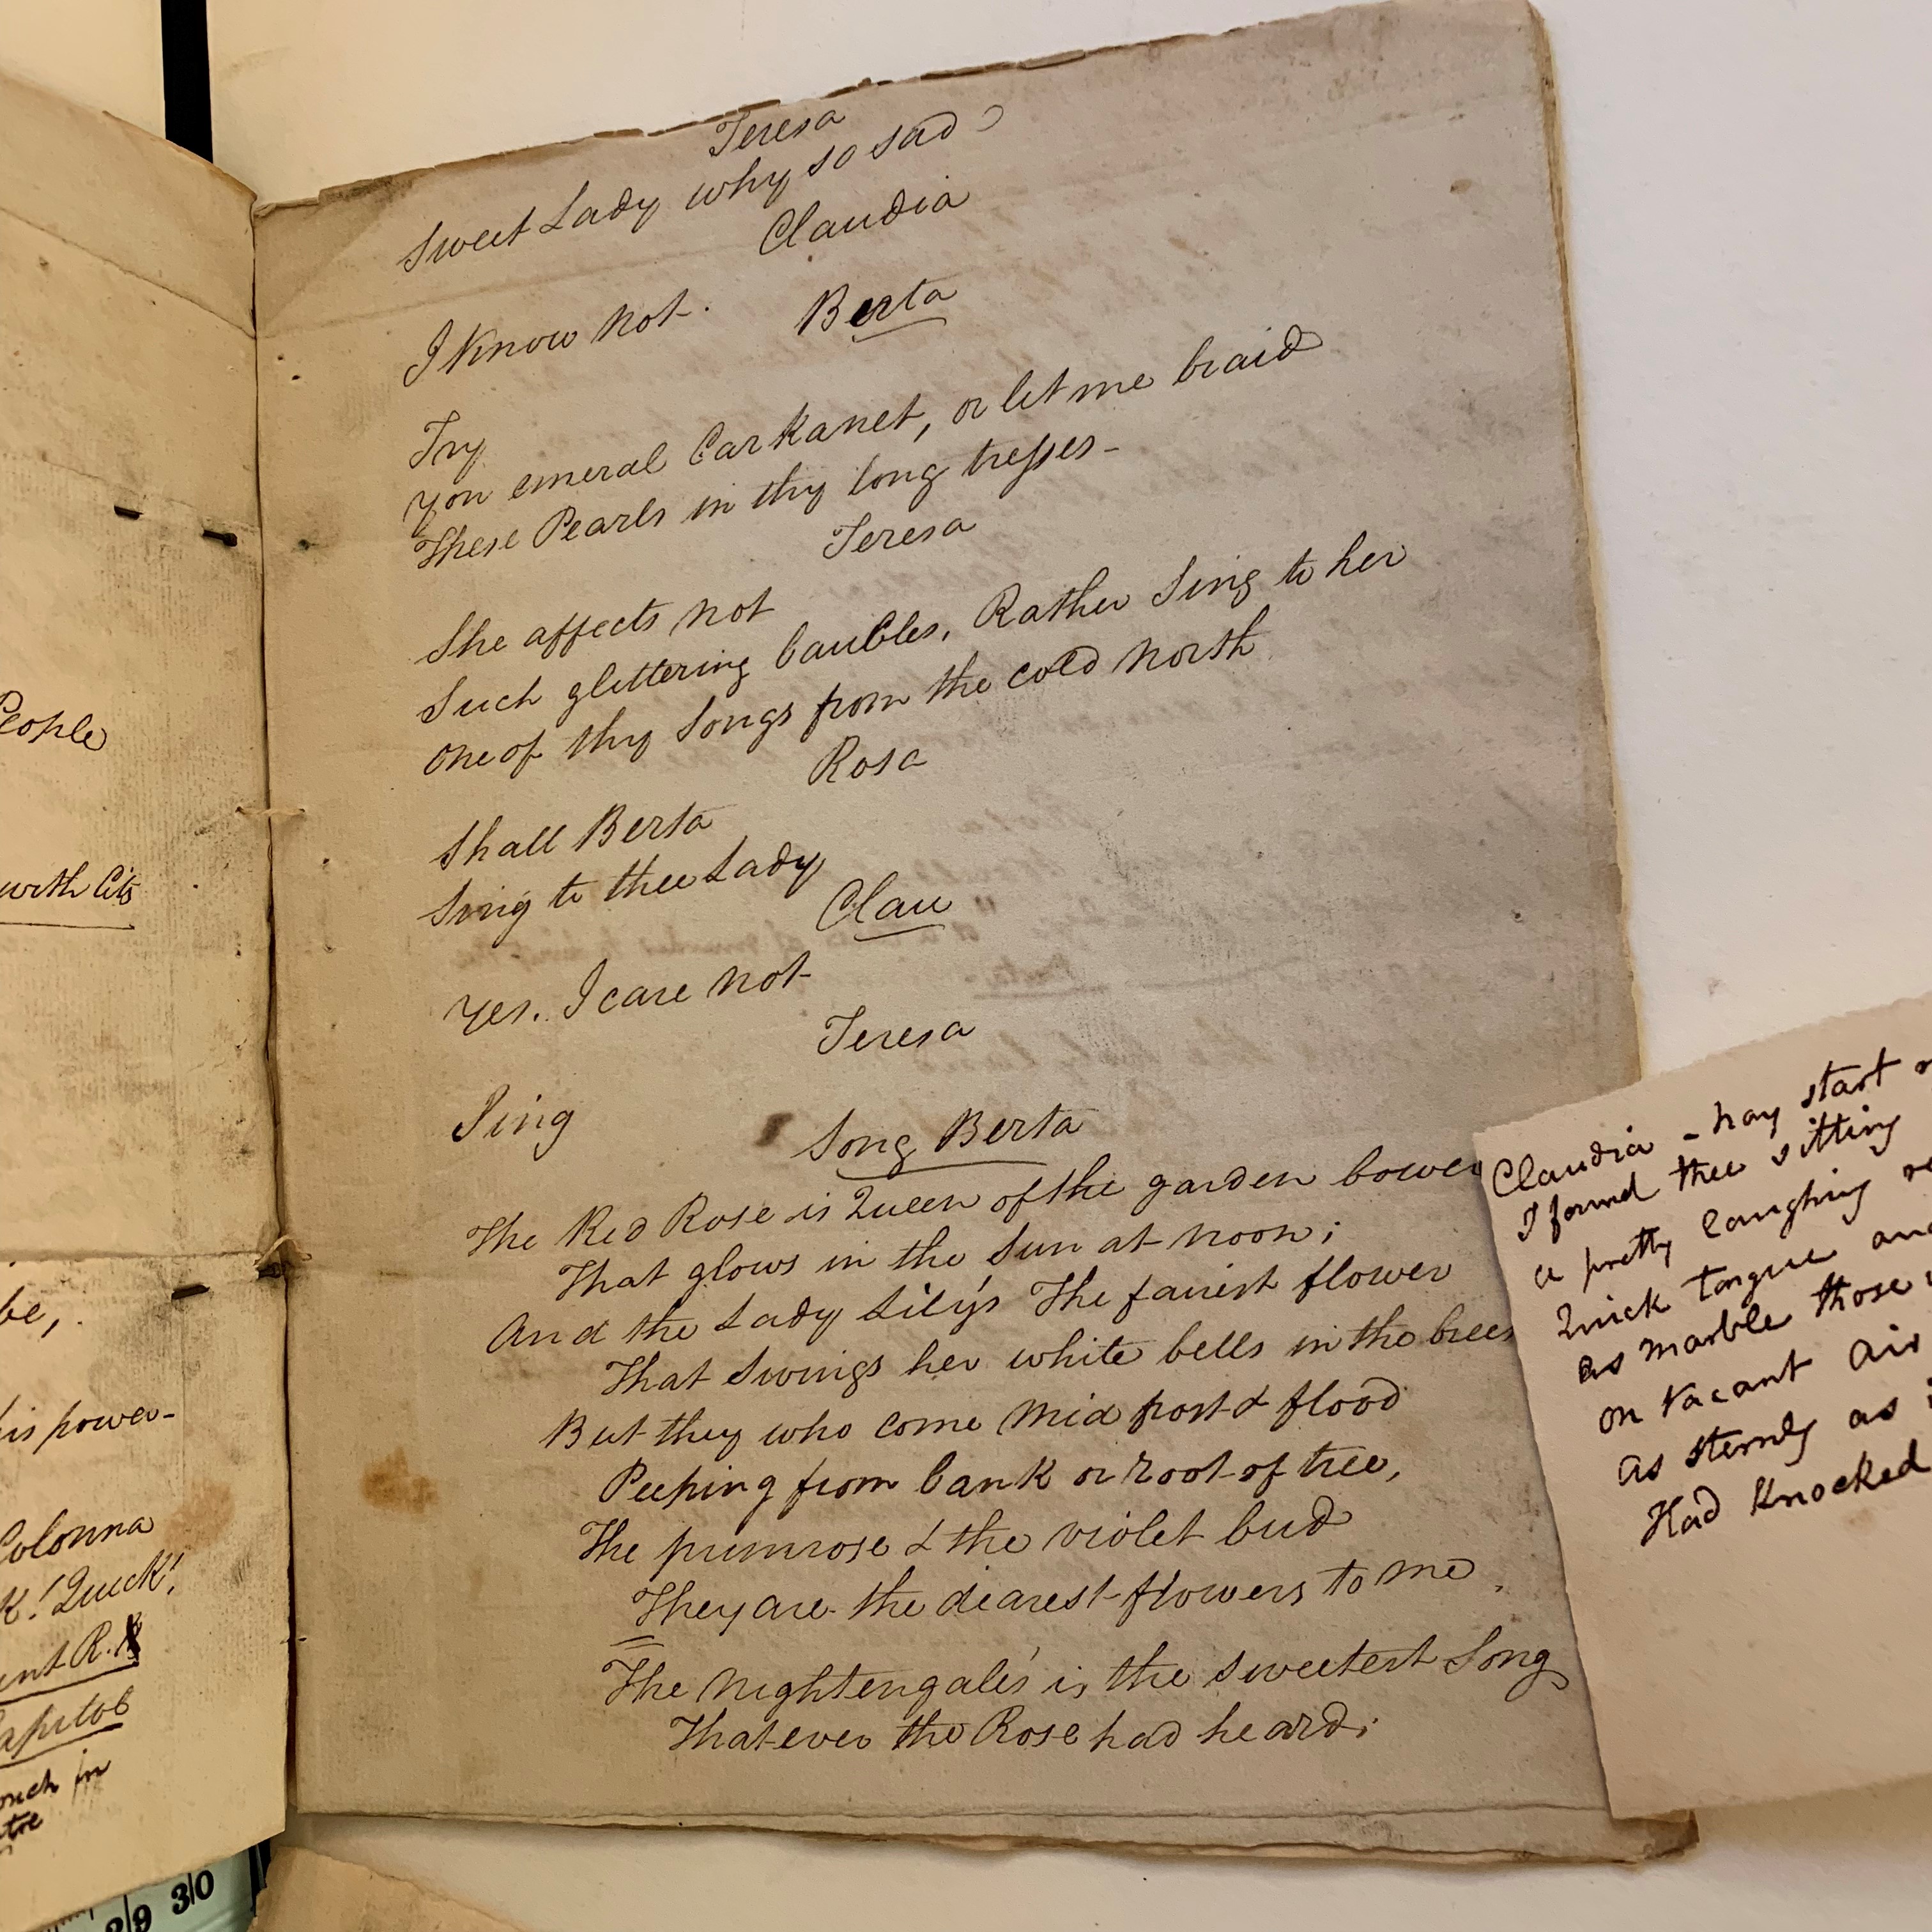 People
with Cits
be,
his power-
Colonna
K! Quick!
R.
Capitol
in
Teresa
Sweet Lady why so sad?
Claudia
I know not.
Berta
Try
yon emeral Carkanet, or let me braid
These Pearls in thy long tresses-
Teresa
She affects not
Such glittering baubles, Rather Sing to her
one of thy Songs from the cold North
Rosa
Shall Berta
Sing to thee Lady
Clau
Yes. I care not-
Teresa
Sing
Song Berta
The Red Rose is Queen of the garden bower
That glows in the Sun at noon;
And the Lady Lily's The fairest flower
That Swings her white bells in the breez
But they who come Mid frost & flood
Peeping from bank or root of tree,
The primrose & the violet bud
They are the dearest flowers to me.
The Nightengale's is the sweetest Song
That ever the Rose had heard;
Claudia - nay start
I found thee sitting
a pretty laughing
Quick tongue and
as marble those
on vacant air
As sternly as
Had Knocked
29 30